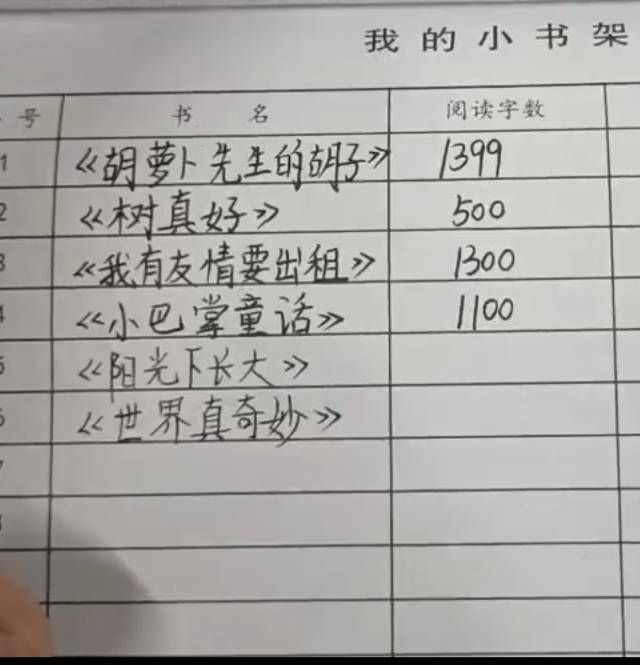 我的小书架
号 书名 阅读字数
1 《胡萝卜先生的胡子》 1399
2 《树真好》 500
3 《我有友情要出租》 1300
4 《小巴掌童话》 1100
5 《阳光下长大》
6 《世界真奇妙》
7